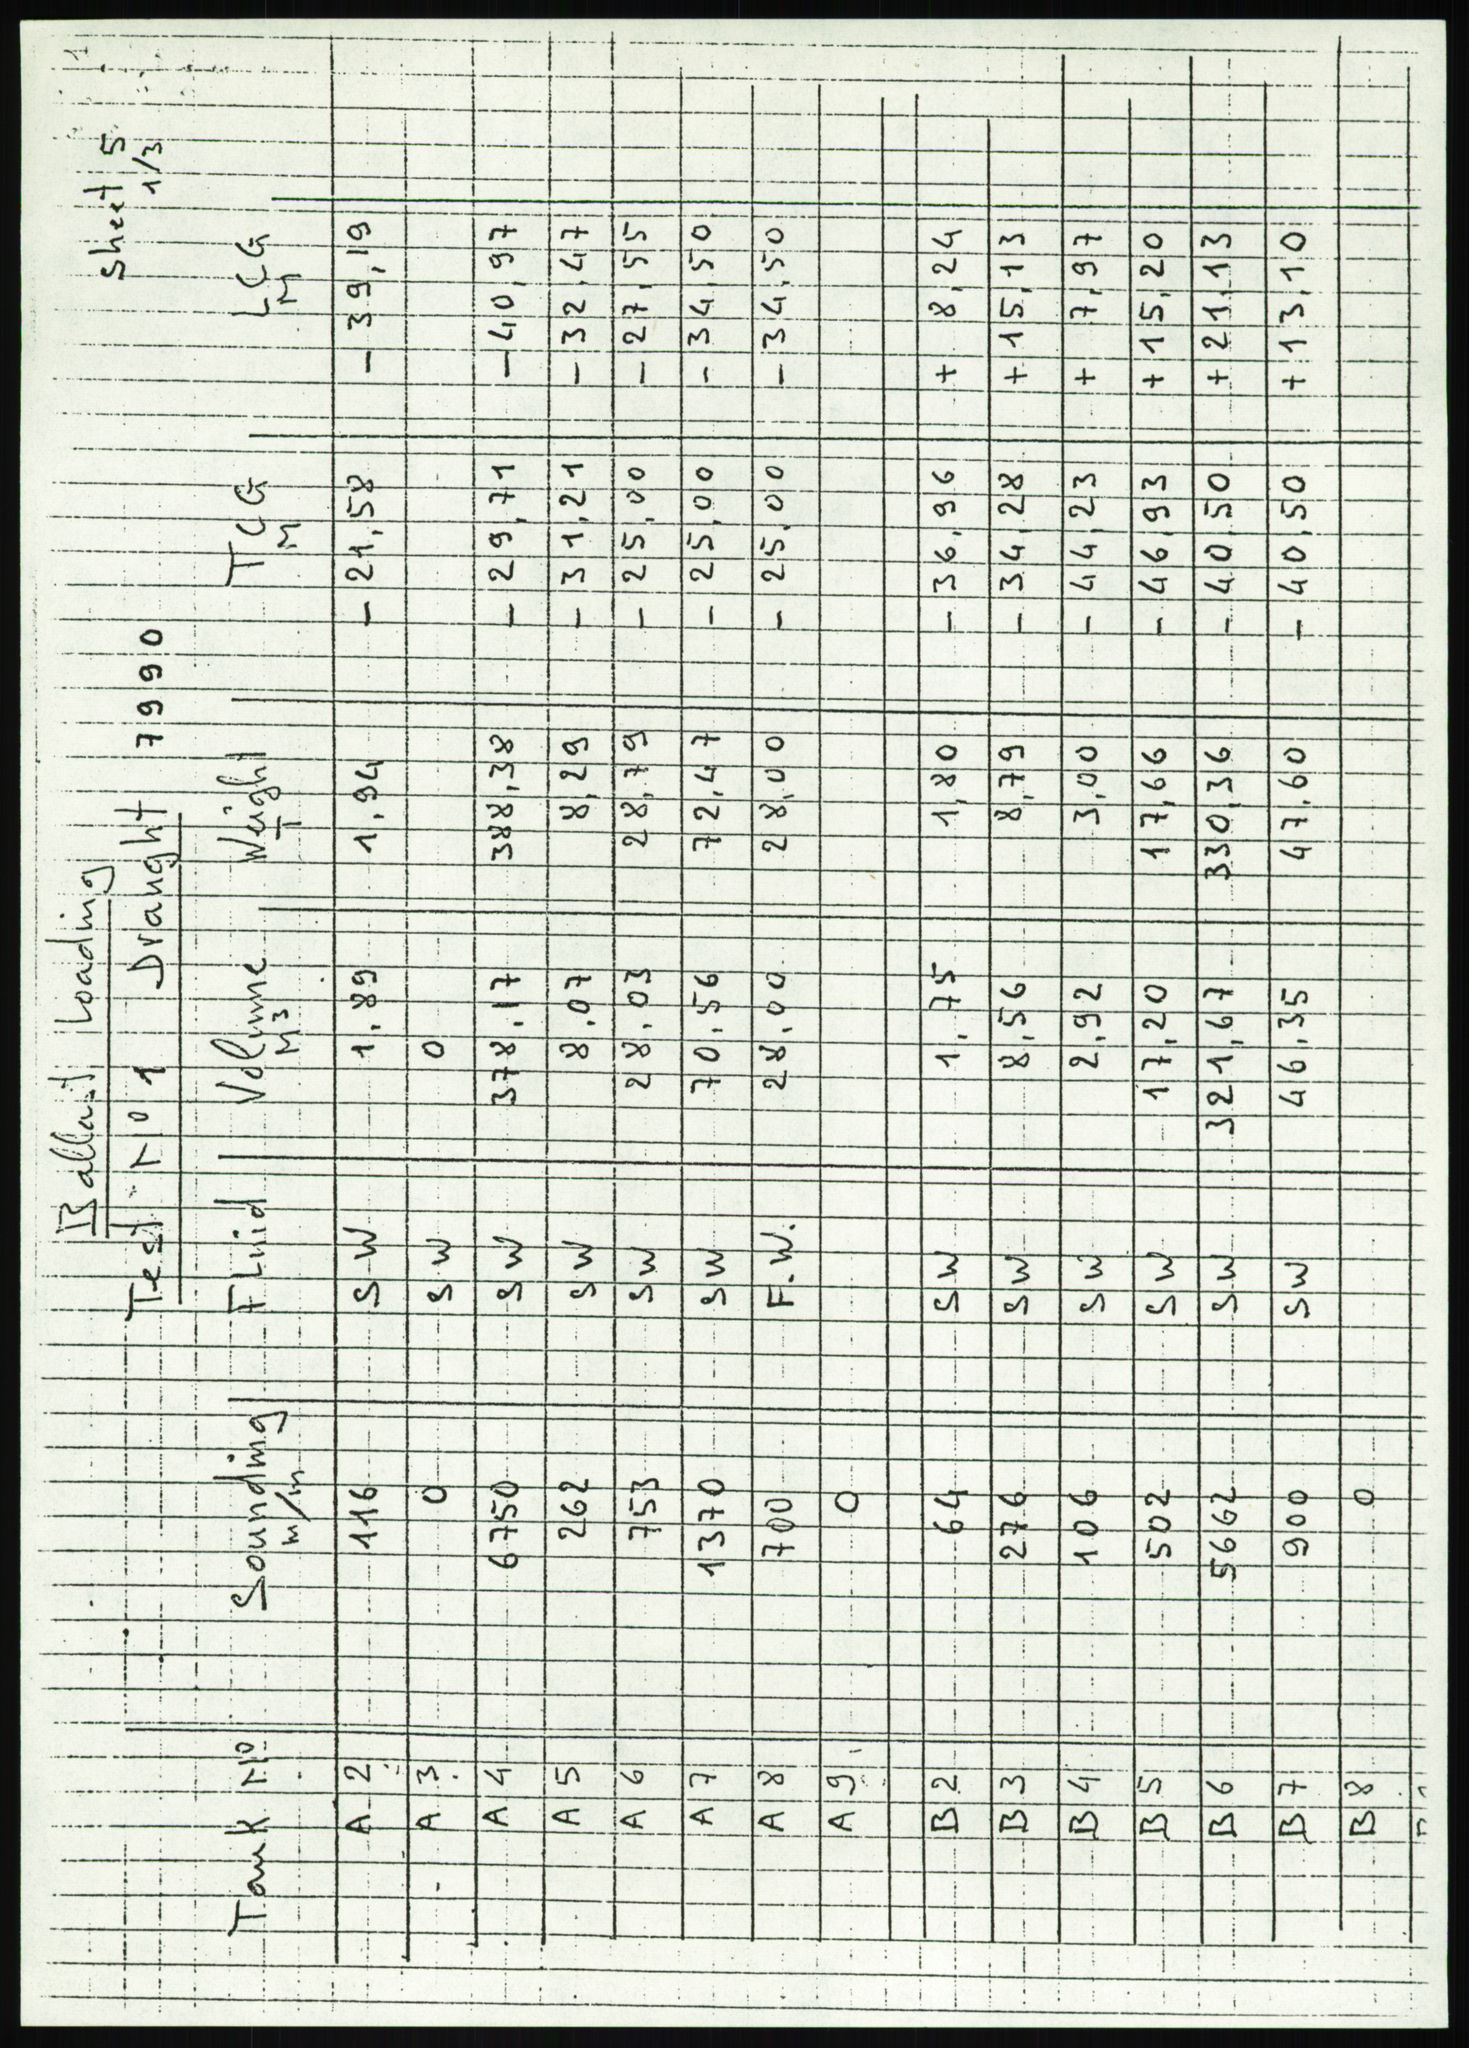 Ballast Loading
Sheet 5
Test No 1 Draught 7990
1/3
Tank No Sounding Fluid Volume Weight TCG LCG
m/m M3 T M M
A 2 116 SW 1,89 1,94 - 21,58 - 39,19
A 3 0 SW 0
A 4 6750 SW 378,17 388,38 - 29,71 - 40,97
A 5 262 SW 8,07 8,29 - 31,21 - 32,47
A 6 753 SW 28,03 28,79 - 25,00 - 27,55
A 7 1370 SW 70,56 72,47 - 25,00 - 34,50
A 8 700 F.W. 28,00 28,00 - 25,00 - 34,50
A 9 0
B 2 64 SW 1,75 1,80 - 36,96 + 8,24
B 3 276 SW 8,56 8,79 - 34,28 + 15,13
B 4 106 SW 2,92 3,00 - 44,23 + 7,97
B 5 502 SW 17,20 17,66 - 46,93 + 15,20
B 6 5662 SW 321,67 330,36 - 40,50 + 21,13
B 7 900 SW 46,35 47,60 - 40,50 + 13,10
B 8 0